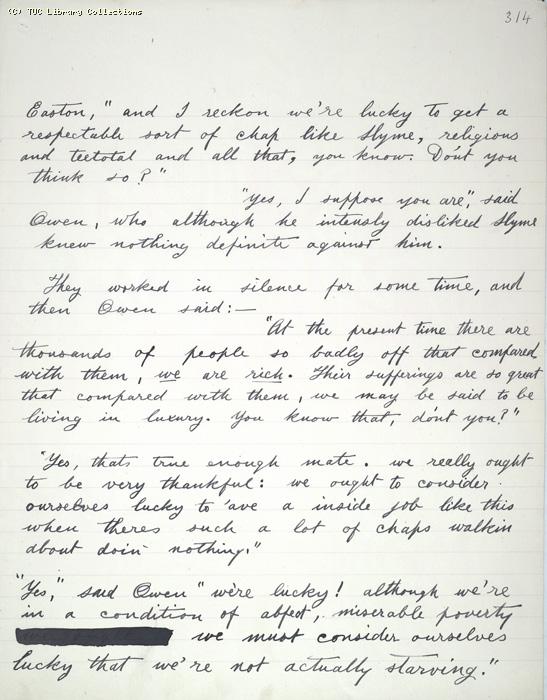 (C) TUC Library Collections
314
Easton," and I reckon we're lucky to get a
respectable sort of chap like Slyme, religious
and teetotal and all that, you know. Dont you
think so?"
"Yes, I suppose you are", said
Owen, who although he intensly disliked Slyme
knew nothing definite against him.
They worked in silence for some time, and
then Owen said:—
"At the present time there are
thousands of people so badly off that compared
with them, we are rich. Their sufferings are so great
that compared with them, we may be said to be
living in luxury. You know that, dont you?"
"Yes, thats true enough mate. we really ought
to be very thankful: we ought to consider
ourselves lucky to 'ave a inside job like this
when theres such a lot of chaps walkin
about doin nothing."
"Yes," said Owen "we're lucky! although we're
in a condition of abject, miserable poverty
we must consider ourselves
lucky that we're not actually starving."